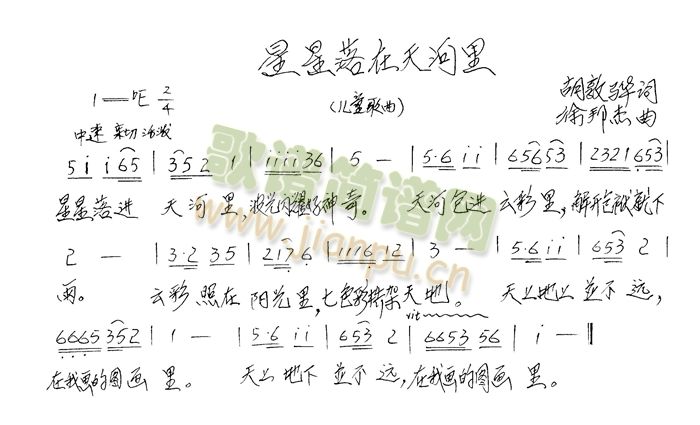 星星落在天河里
(儿童歌曲)
1=♭E 2/4
胡敦骅词
徐邦杰曲
中速 亲切 活泼
5 i i 6 5 | 3 5 2 1 | i i i i 3 6 | 5 — | 5·6 i i | 6 5 6 5 3 | 2 3 2 1 6 5 3 |
星星落进 天河里,波光闪耀好神奇。 天河包进 云彩里,解开包袱就下
2 — | 3·2 3 5 | 2 1 7 6 | 1 1 1 6 1 2 | 3 — | 5·6 i i | 6 5 3 2 |
雨。 云彩照在 阳光里,七色彩桥架天地。 天上地上 並不远,
rit
6 6 6 5 3 5 2 | 1 — | 5·6 i i | 6 5 3 2 | 6 6 5 3 5 6 | i — ‖
在我画的图画 里。 天上 地下 並不 远,在我画的图画 里。
歌谱简谱网
www.jianpu.cn